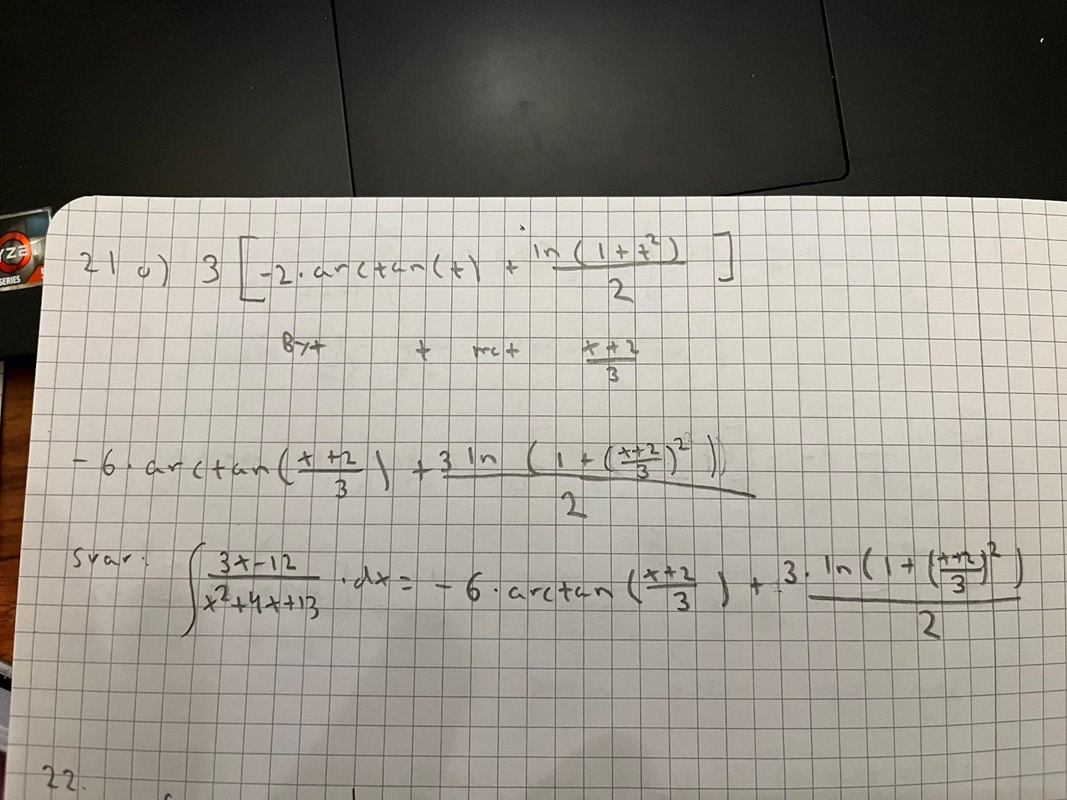 YZE
SERIES
21 a) 3 [-2·arctan(t) + ln(1+t²)/2]
Byt t mot (x+2)/3
-6·arctan((x+2)/3) + 3 ln(1+((x+2)/3)²))/2
Svar: ∫ (3x-12)/(x²+4x+13) ·dx = -6·arctan((x+2)/3) + 3·ln(1+((x+2)/3)²)/2
22.